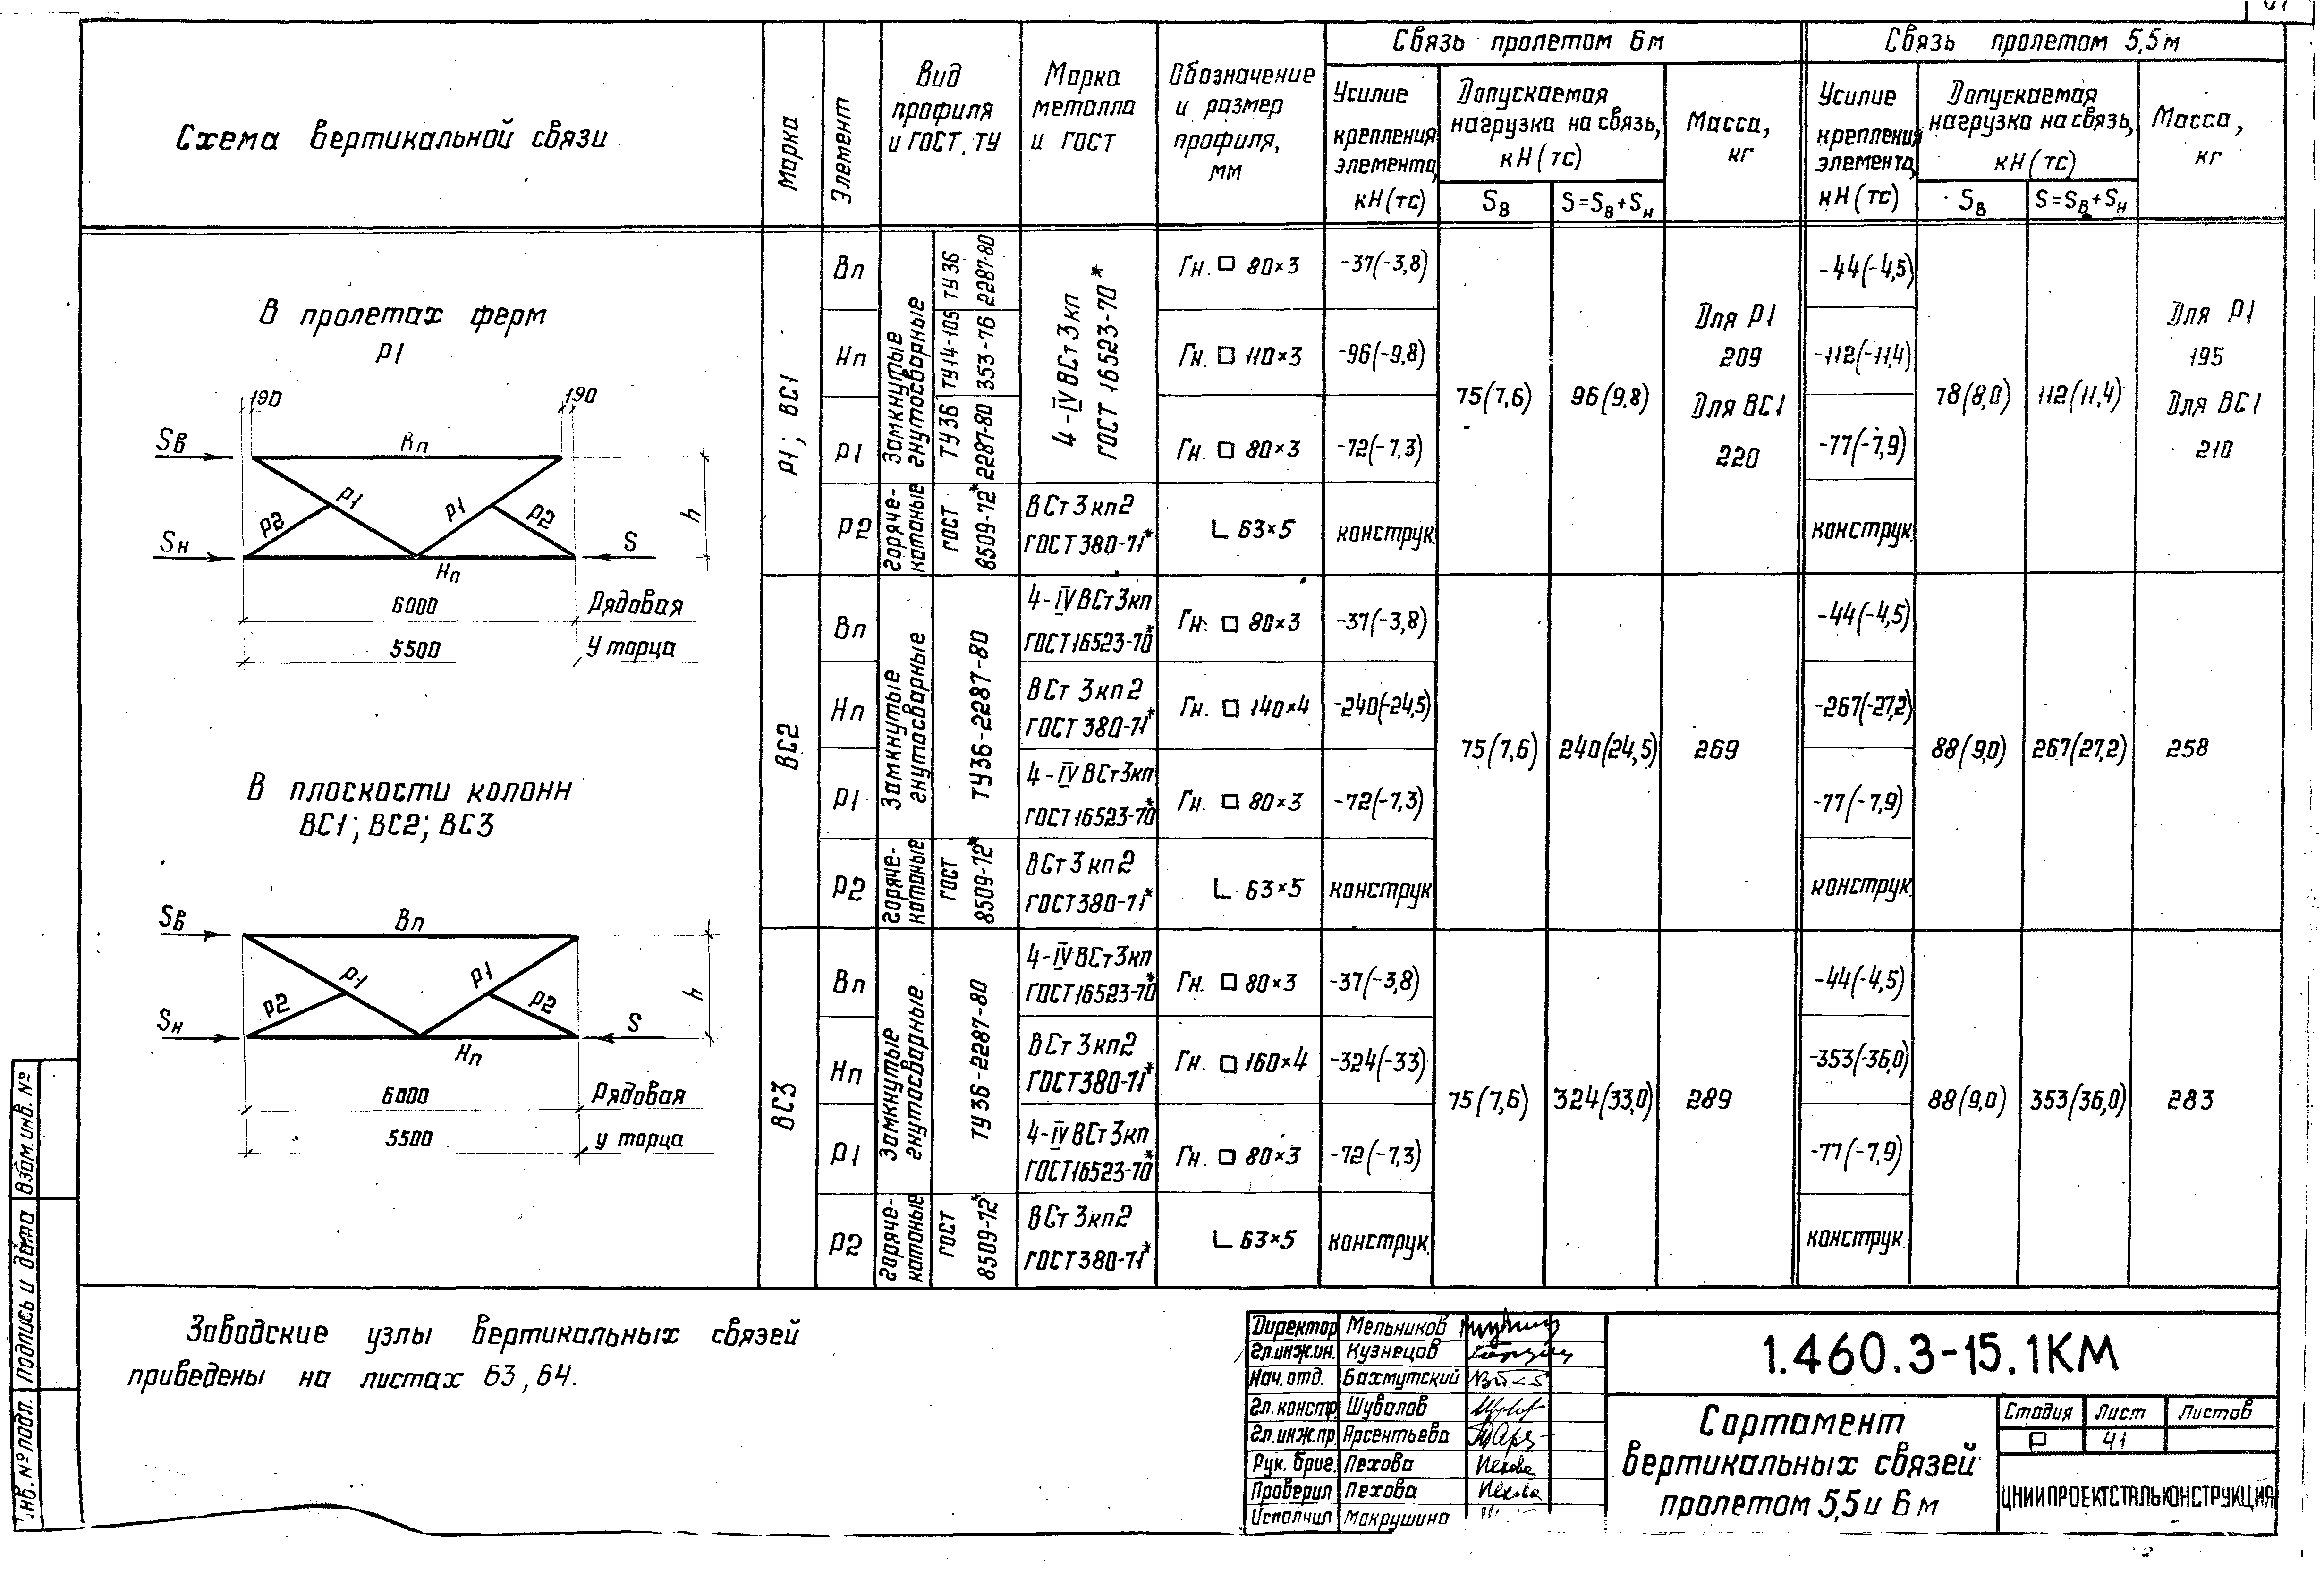 Схема вертикальной связи
Марка
Элемент
Вид профиля и ГОСТ, ТУ
Марка металла и ГОСТ
Обозначение и размер профиля, мм
Связь пролетом 6м
Усилие крепления элемента, кН(тс)
Допускаемая нагрузка на связь, кН(тс)
Sв
S=Sв+Sн
Масса, кг
Связь пролетом 5,5м
Усилие крепления элемента, кН(тс)
Допускаемая нагрузка на связь, кН(тс)
Sв
S=Sв+Sн
Масса, кг
В пролетах ферм
Р1
190
190
Sв
Вп
Р1
Р1
Р2
Р2
h
Sн
S
Нп
6000
Рядовая
5500
У торца
В плоскости колонн
ВС1; ВС2; ВС3
Sв
Вп
Р1
Р1
Р2
Р2
h
Sн
S
Нп
6000
Рядовая
5500
у торца
Р1; ВС1
Замкнутые гнутосварные
4-IV ВСт3кп ГОСТ 16523-70*
Вп
ТУ36 2287-80
Гн. □ 80×3
-37(-3,8)
-44(-4,5)
Нп
ТУ14-105 353-76
Гн. □ 110×3
-96(-9,8)
-112(-11,4)
Р1
ТУ36 2287-80
Гн. □ 80×3
-72(-7,3)
-77(-7,9)
Р2
горяче-катаные
ГОСТ 8509-72*
ВСт3кп2 ГОСТ380-71*
∟ 63×5
конструк.
конструк.
75(7,6)
96(9,8)
Для Р1
209
Для ВС1
220
78(8,0)
112(11,4)
Для Р1
195
Для ВС1
210
ВС2
Замкнутые гнутосварные
ТУ36-2287-80
Вп
4-IVВСт3кп ГОСТ16523-70*
Гн. □ 80×3
-37(-3,8)
-44(-4,5)
Нп
ВСт 3кп2 ГОСТ380-71*
Гн. □ 140×4
-240(-24,5)
-267(-27,2)
Р1
4-IVВСт3кп ГОСТ16523-70*
Гн. □ 80×3
-72(-7,3)
-77(-7,9)
Р2
горяче-катаные
ГОСТ 8509-72*
ВСт3кп2 ГОСТ380-71*
∟ 63×5
конструк
конструк.
75(7,6)
240(24,5)
269
88(9,0)
267(27,2)
258
ВС3
Замкнутые гнутосварные
ТУ36-2287-80
Вп
4-IVВСт3кп ГОСТ16523-70*
Гн. □ 80×3
-37(-3,8)
-44(-4,5)
Нп
ВСт3кп2 ГОСТ380-71*
Гн. □ 160×4
-324(-33)
-353(-36,0)
Р1
4-IVВСт3кп ГОСТ16523-70*
Гн. □ 80×3
-72(-7,3)
-77(-7,9)
Р2
горяче-катаные
ГОСТ 8509-72*
ВСт3кп2 ГОСТ380-71*
∟ 63×5
конструк.
конструк.
75(7,6)
324(33,0)
289
88(9,0)
353(36,0)
283
Заводские узлы вертикальных связей
приведены на листах 63, 64.
Директор Мельников
Гл.инж.ин. Кузнецов
Нач.отд. Бахмутский
Гл.констр. Шувалов
Гл.инж.пр. Арсентьева
Рук.бриг. Пехова Пехова
Проверил Пехова Пехова
Исполнил Макрушина
1.460.3-15.1КМ
Сортамент
вертикальных связей
пролетом 5,5 и 6 м
Стадия Лист Листов
Р 41
ЦНИИПРОЕКТСТАЛЬКОНСТРУКЦИЯ
Инв.№подл.
Подпись и дата
Взам.инв.№